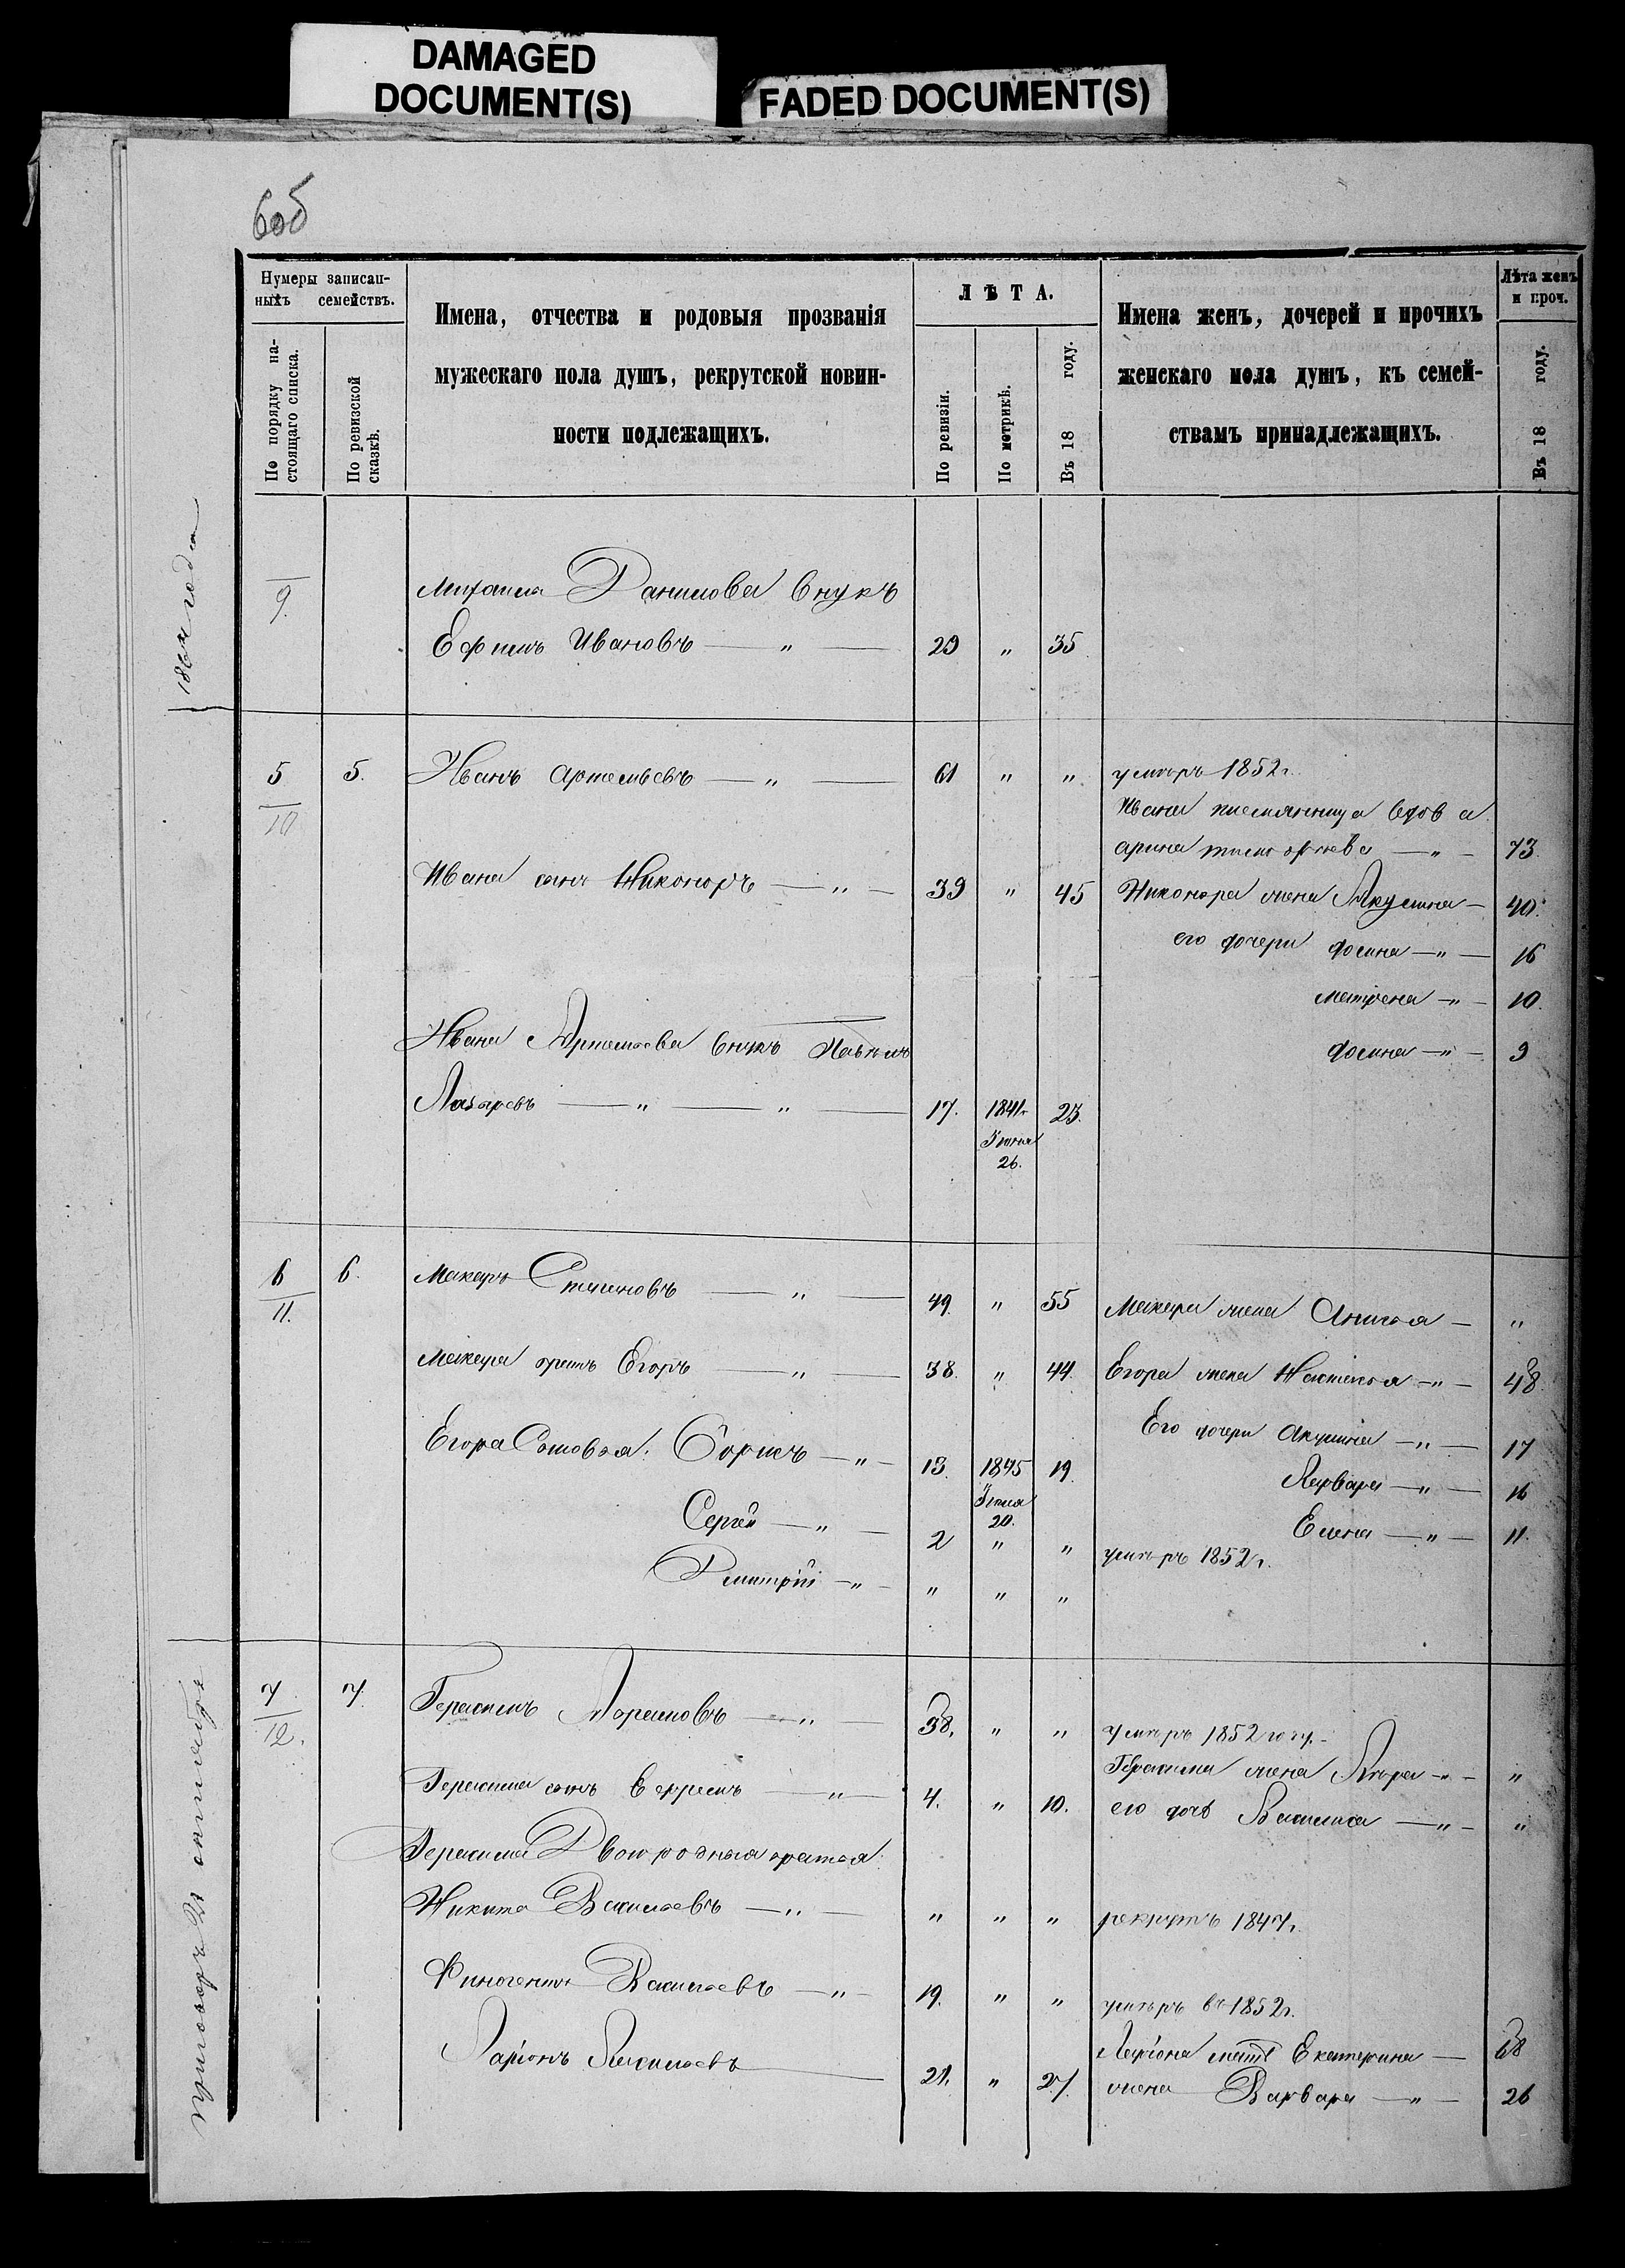 DAMAGED
DOCUMENT(S)
FADED DOCUMENT(S)
6об
Нумеры записан-
ныхъ семействъ.
По порядку на-
стоящаго списка.
По ревизской
сказкѣ.
Имена, отчества и родовыя прозванія
мужескаго пола душъ, рекрутской повин-
ности подлежащихъ.
ЛѢТА.
По ревизіи.
По метрикѣ.
Въ 18 году.
Имена женъ, дочерей и прочихъ
женскаго пола душъ, къ семей-
ствамъ принадлежащихъ.
Лѣта женъ
и проч.
Въ 18 году.
1864 года
9. Михаила Данилова внукъ
Ефимъ Ивановъ — " — 29 " 35
5 5. Иванъ Артемьевъ — " — 61 " " умеръ 1852 г.
10
Ивана племянница вдова
арина — " — 73.
Ивана сынъ Никоноръ — " — 39 " 45 Никонора жена Акулина — 40.
его дочери фосина — " — 16
матрена — " — 10.
Ивана Артемьева внукъ Павелъ
фосина — " — 9
Лазаревъ — " — " — 17. 1841 г. 23.
Іюня
26.
6 6. Макаръ Степановъ — " — 49. " 55 Макара жена Анисья — "
11.
Макара братъ Егоръ — " — 38. " 44. Егора жена Настасья — " — 48
Егора Сыновья: Борисъ — " — 13. 1845 19. Его дочери Акулина — " — 17
Іюля
20.
Варвара — " — 16
Сергей — " — 2 " " умеръ 1852 г.
Елена — " — 11.
Дмитрій — " — " " "
приговоръ 21 октября
7. 7. Герасимъ Ларионовъ — " — 38. " " умеръ 1852 году.
12.
Герасима жена — " — "
Герасима сынъ Ефремъ — " — 4. " 10. его дочь Василиса — " — "
Герасима Двоюродныя братья:
Никита Васильевъ — " — " " " рекрутъ 1847 г.
Финогентъ Васильевъ — " — 19. " " умеръ въ 1852 г.
Ларіонъ Васильевъ — 21. " 27. Ларіона мать Екатерина — 68
жена Варвара — " — 26